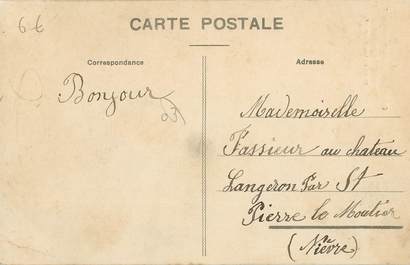 6€
CARTE POSTALE
Correspondance
Adresse
Bonjour
Mademoiselle
Fassieur au chateau
Langeron Par St
Pierre le Moutier
(Nièvre)